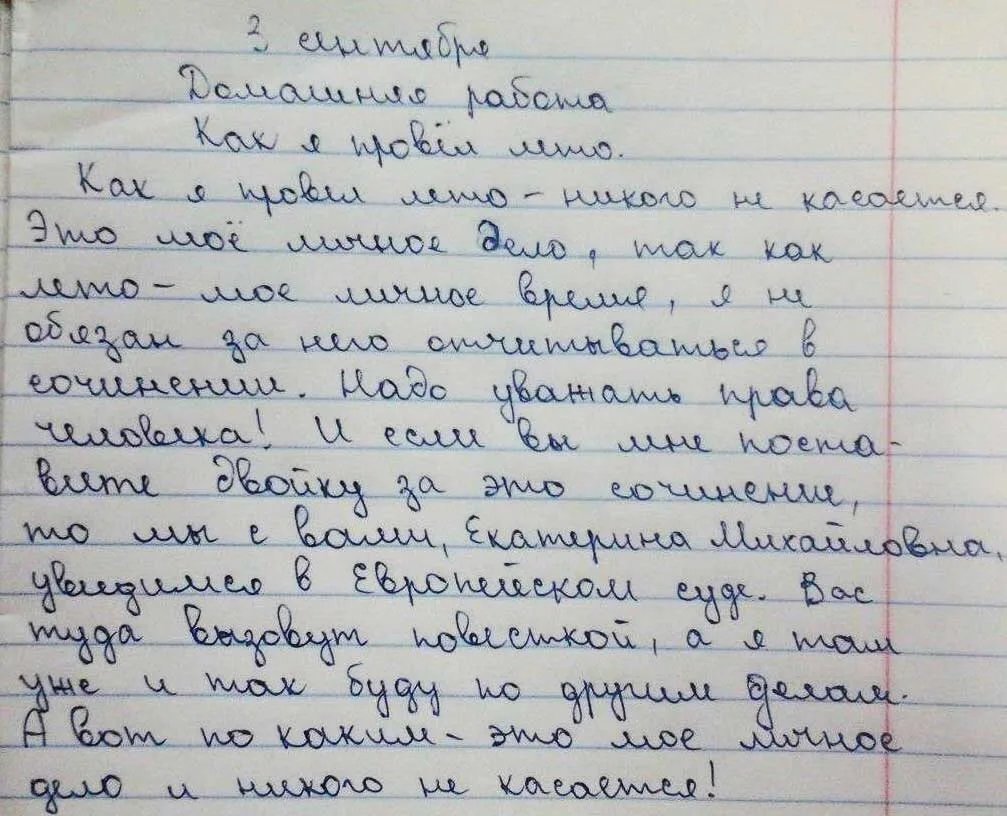 3 сентября
Домашняя работа
Как я провёл лето.
Как я провел лето – никого не касается.
Это моё личное дело, так как
лето – мое личное время, я не
обязан за него отчитываться в
сочинении. Надо уважать права
человека! И если вы мне поста-
вите двойку за это сочинение,
то мы с вами, Екатерина Михайловна,
увидимся в Европейском суде. Вас
туда вызовут повесткой, а я там
уже и так буду по другим делам.
А вот по каким – это мое личное
дело и никого не касается!